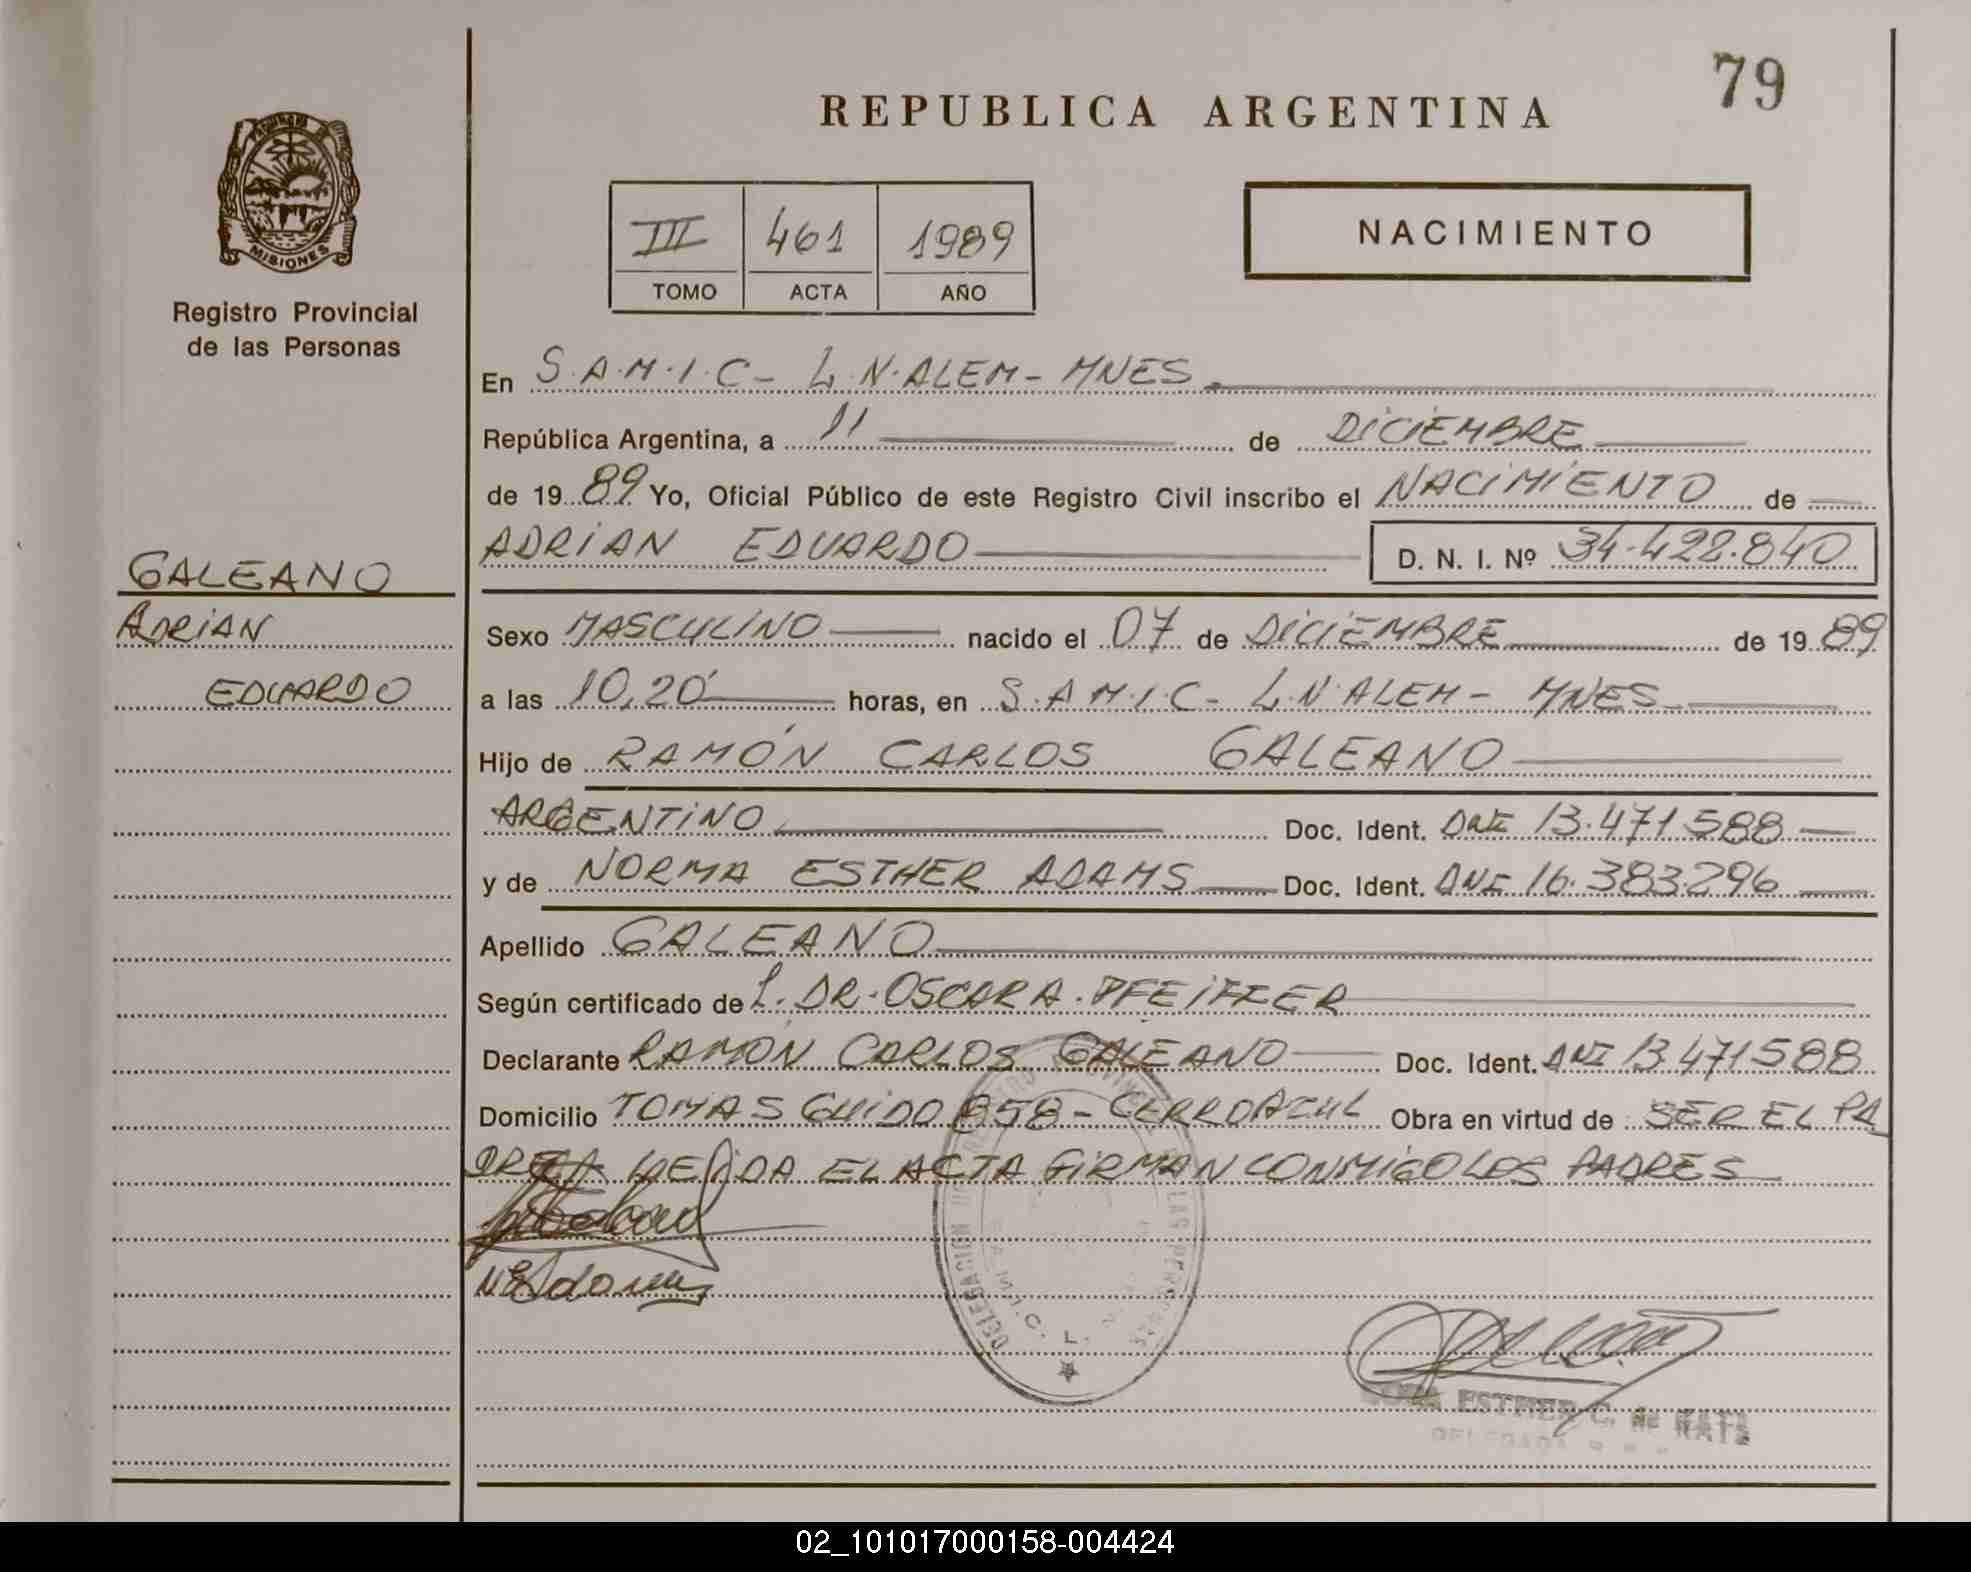 79
REPUBLICA ARGENTINA
MISIONES
Registro Provincial
de las Personas
III 461 1989
TOMO ACTA AÑO
NACIMIENTO
En S.A.M.I.C- L.N.ALEM- MNES
República Argentina, a 11 de DICIEMBRE
de 19 89 Yo, Oficial Público de este Registro Civil inscribo el NACIMIENTO de
ADRIAN EDUARDO D. N. I. Nº 34.422.840
GALEANO
ADRIAN
EDUARDO
Sexo MASCULINO nacido el 07 de DICIEMBRE de 19 89
a las 10,20 horas, en S.A.M.I.C- L.N.ALEM- MNES
Hijo de RAMÓN CARLOS GALEANO
ARGENTINO Doc. Ident. DNI 13.471.588
y de NORMA ESTHER ADAMS Doc. Ident. DNI 16.383.296
Apellido GALEANO
Según certificado de L. DR. OSCAR A. PFEIFFER
Declarante RAMÓN CARLOS GALEANO Doc. Ident. DNI 13.471588
Domicilio TOMAS GUIDO 858 - CERRO AZUL Obra en virtud de SER EL PA
DRE LEIDA EL ACTA FIRMAN CONMIGO LOS PADRES
NEAdams
DELEGACION LAS PERSONAS
S.A.M.I.C. L.
ESTHER C. de
DELEGADA
02_101017000158-004424